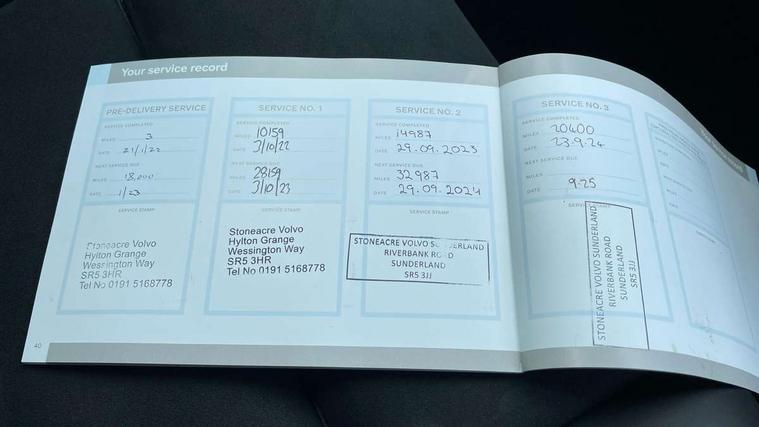 Your service record
PRE-DELIVERY SERVICE
SERVICE COMPLETED
MILES 3
DATE 21/1/22
NEXT SERVICE DUE
MILES 18,000
DATE 1/23
SERVICE STAMP
Stoneacre Volvo
Hylton Grange
Wessington Way
SR5 3HR
Tel No 0191 5168778
SERVICE NO. 1
SERVICE COMPLETED
MILES 10159
DATE 3/10/22
NEXT SERVICE DUE
MILES 28159
DATE 3/10/23
SERVICE STAMP
Stoneacre Volvo
Hylton Grange
Wessington Way
SR5 3HR
Tel No 0191 5168778
SERVICE NO. 2
SERVICE COMPLETED
MILES 14987
DATE 29.09.2023
NEXT SERVICE DUE
MILES 32987
DATE 29.09.2024
SERVICE STAMP
STONEACRE VOLVO SUNDERLAND
RIVERBANK ROAD
SUNDERLAND
SR5 3JJ
SERVICE NO. 3
SERVICE COMPLETED
MILES 20400
DATE 23.9.24
NEXT SERVICE DUE
MILES
DATE 9.25
STONEACRE VOLVO SUNDERLAND
RIVERBANK ROAD
SUNDERLAND
SR5 3JJ
40